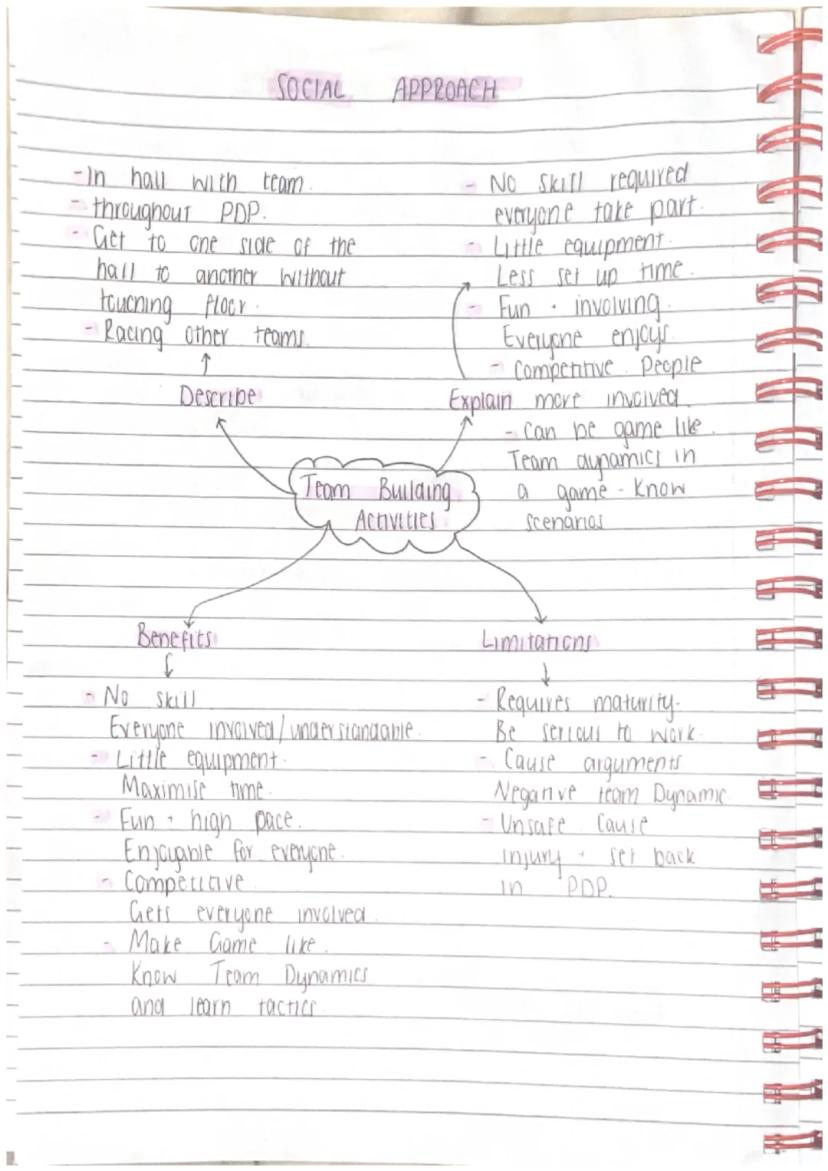 SOCIAL APPROACH
- In hall with team.
- throughout PDP.
- Get to one side of the
hall to another without
touching floor.
- Racing other teams.
Describe
- No skill required
everyone take part.
- Little equipment.
Less set up time.
- Fun + involving.
Everyone enjoys.
- Competitive. People
Explain more involved.
- Can be game like.
Team dynamics in
a game - Know
scenarios
Team Building
Activities
Benefits
- No skill
Everyone involved/understandable.
- Little equipment.
Maximise time.
- Fun + high pace.
Enjoyable for everyone.
- Competitive.
Gets everyone involved.
- Make Game like.
Know Team Dynamics
and learn tactics.
Limitations
- Requires maturity.
Be serious to work.
- Cause arguments
Negative team Dynamic.
- Unsafe. Cause
injury + set back
in PDP.